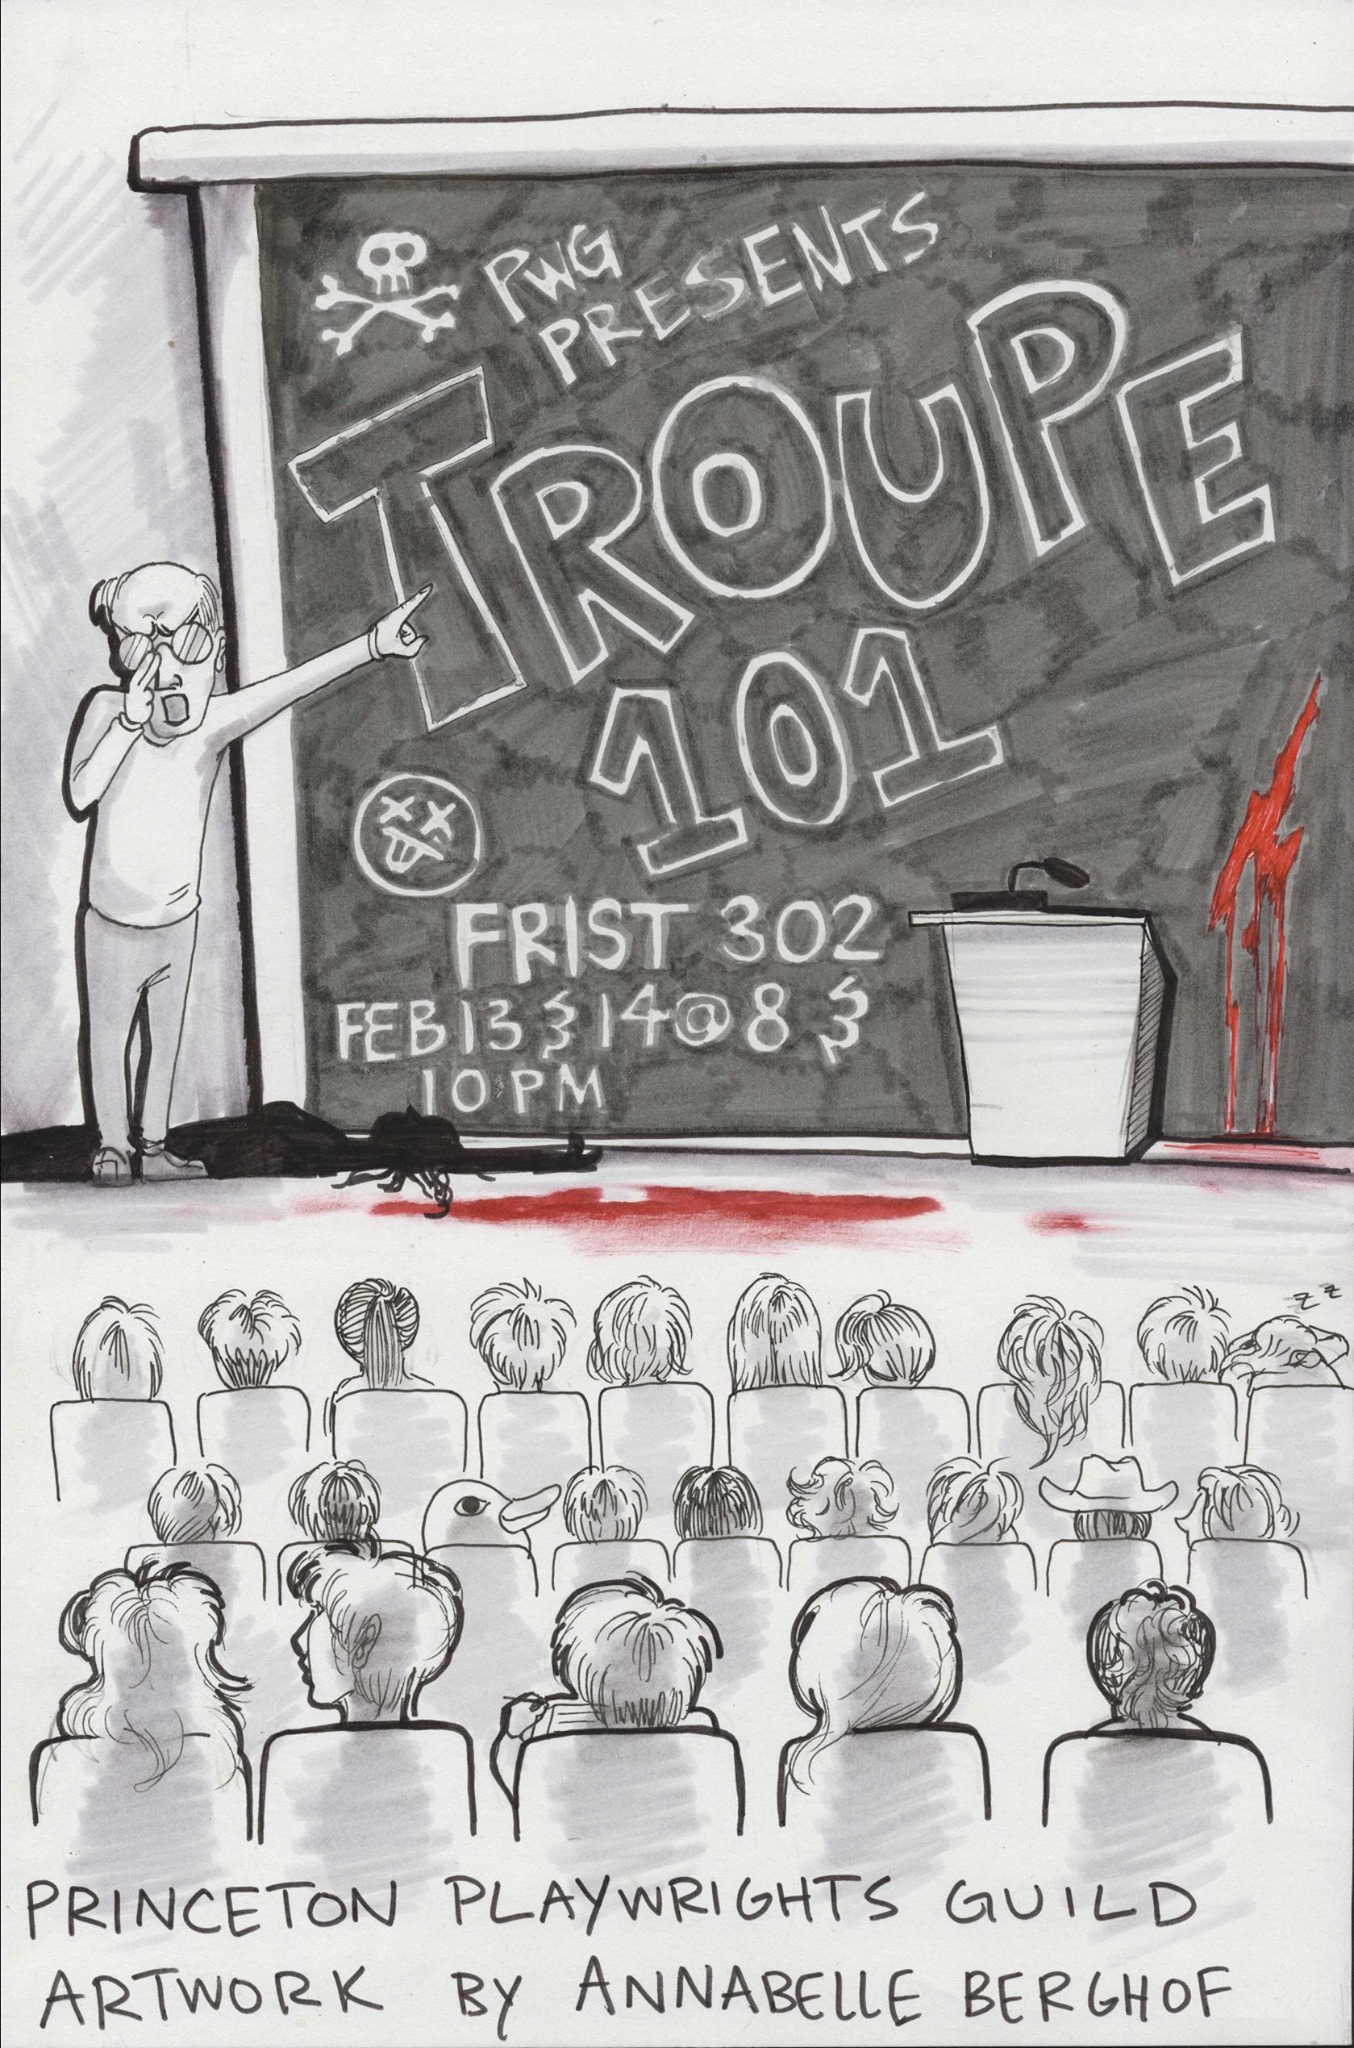 PWG
PRESENTS
TROUPE
101
FRIST 302
FEB 13 & 14 @ 8 &
10 PM
z z
PRINCETON PLAYWRIGHTS GUILD
ARTWORK BY ANNABELLE BERGHOF